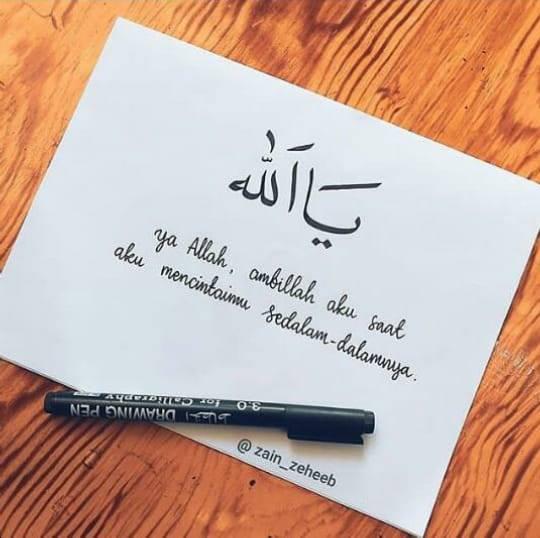 يَا اَللّٰه
ya Allah, ambillah aku saat
aku mencintaimu sedalam-dalamnya.
3.0 for Calligraphy
DRAWING PEN الخطاط
@zain_zeheeb